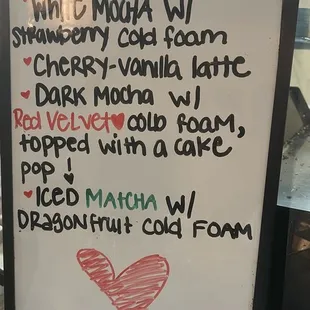 White Mocha w/
strawberry cold foam
Cherry-vanilla latte
Dark Mocha w/
Red Velvet cold foam,
topped with a cake
pop!
Iced Matcha w/
Dragonfruit cold foam